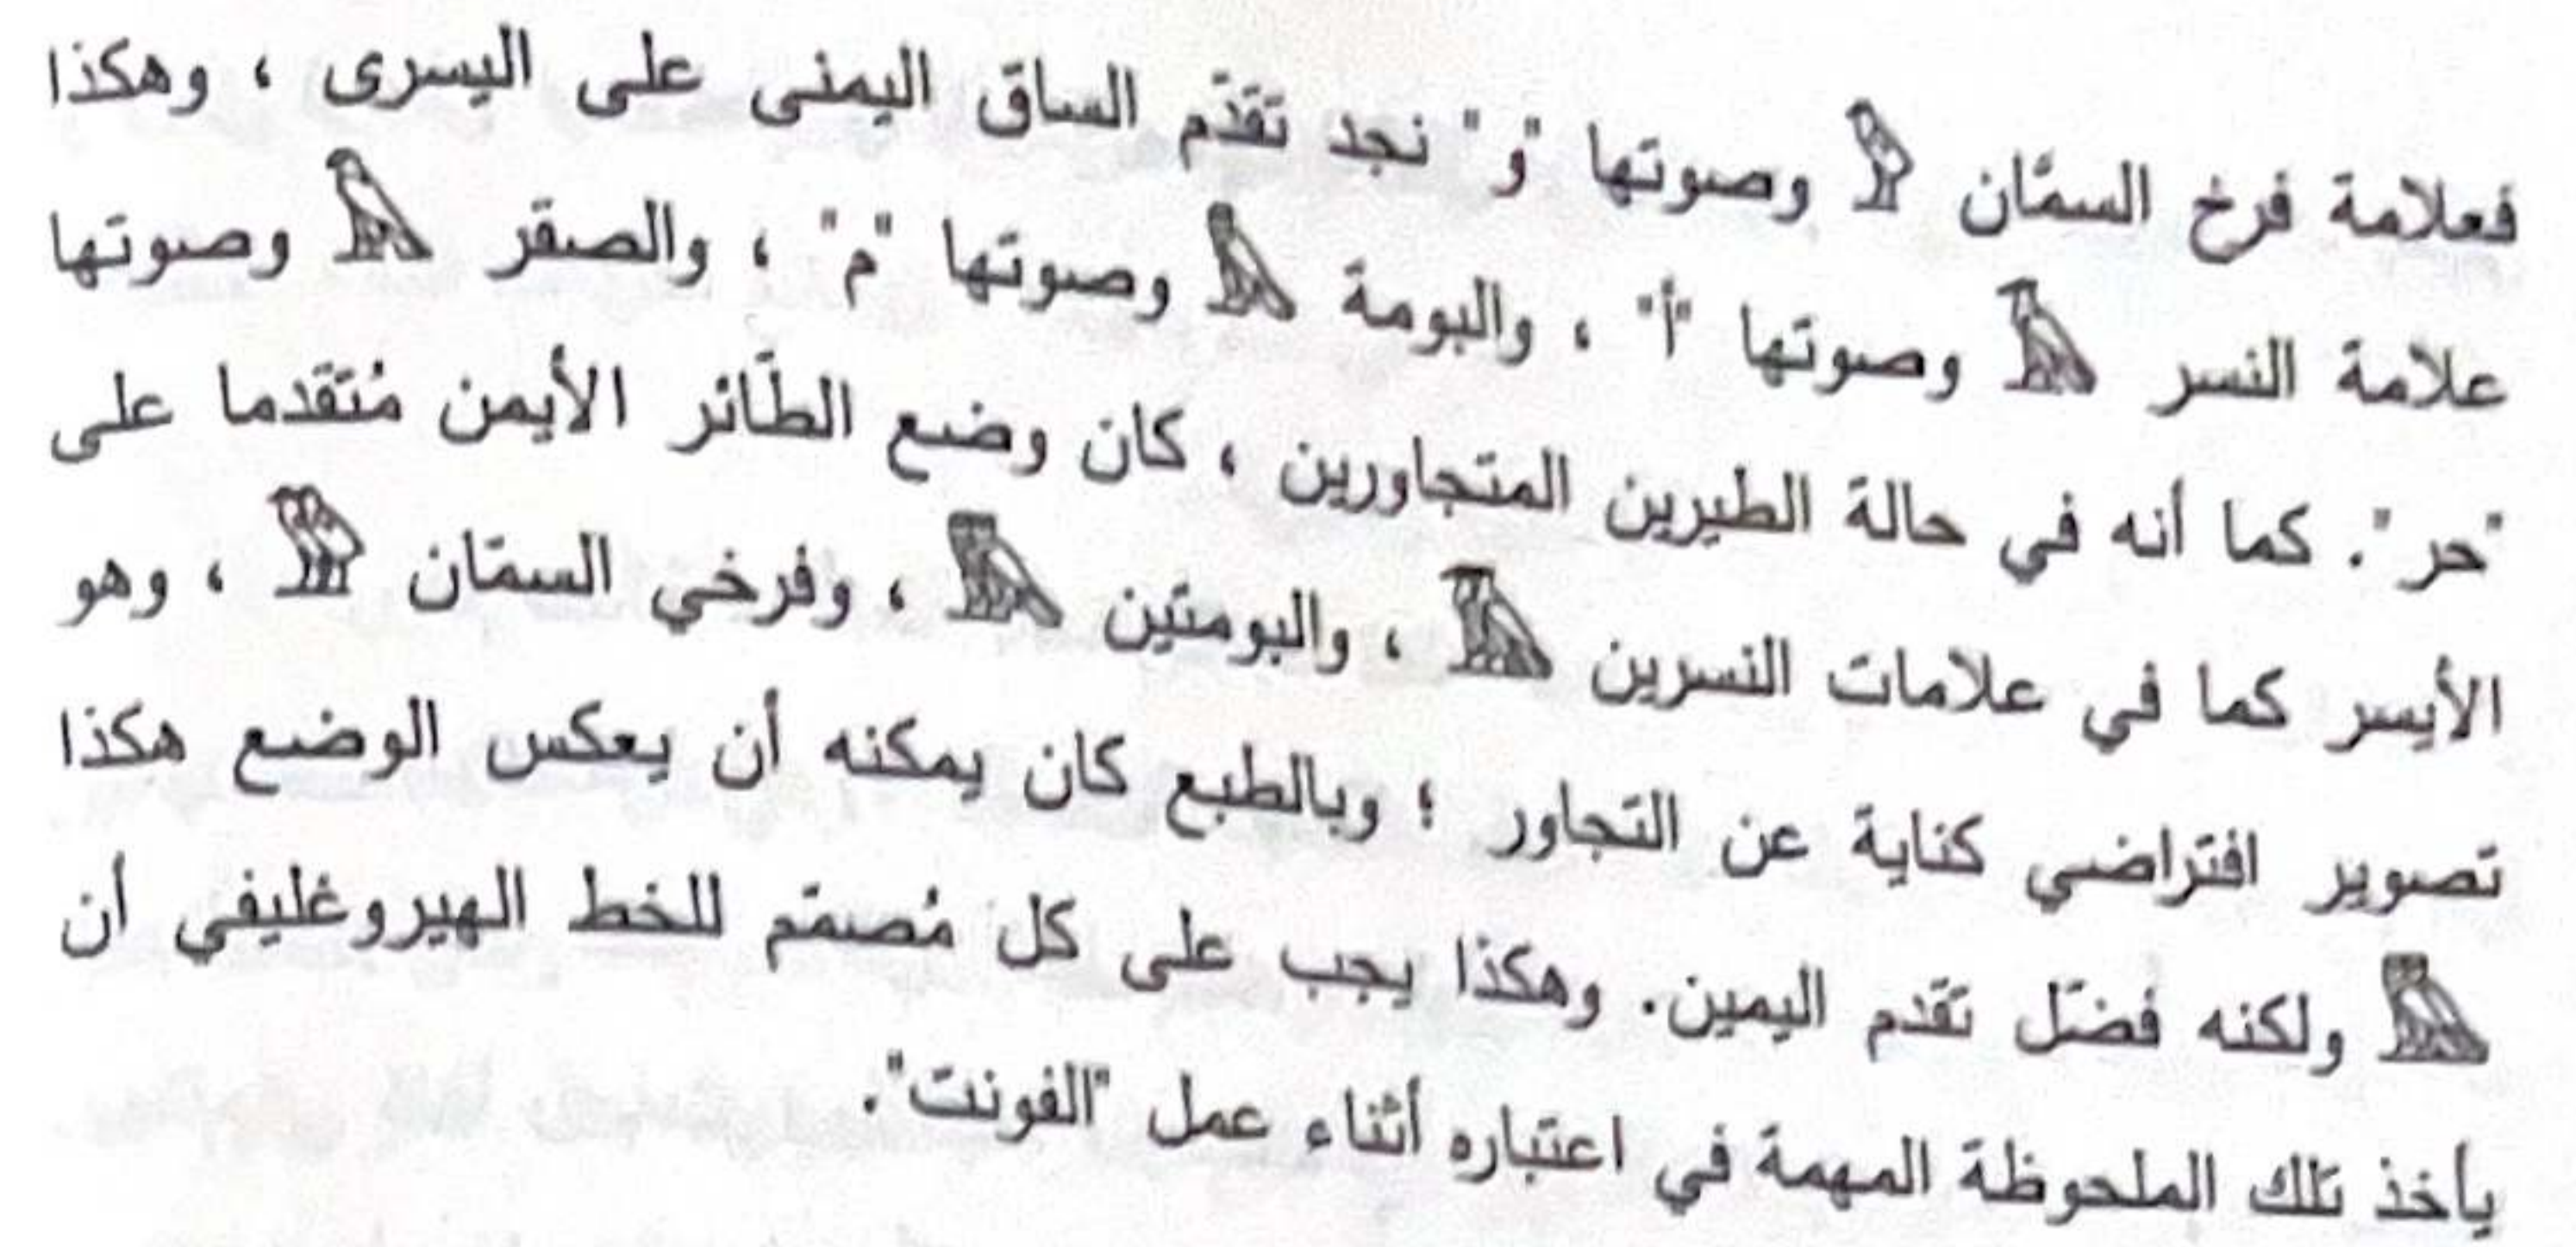 فعلامة فرخ السمّان 𓅱 وصوتها "و" نجد تقدّم الساق اليمنى على اليسرى ، وهكذا
علامة النسر 𓄿 وصوتها "أ" ، والبومة 𓅓 وصوتها "م" ، والصقر 𓅃 وصوتها
"حر". كما أنه في حالة الطيرين المتجاورين ، كان وضع الطّائر الأيمن مُتقدما على
الأيسر كما في علامات النسرين 𓅀 ، والبومتين 𓅔 ، وفرخي السمّان 𓅲 ، وهو
تصوير افتراضي كناية عن التجاور ؛ وبالطبع كان يمكنه أن يعكس الوضع هكذا
ولكنه فضّل تقدم اليمين. وهكذا يجب على كل مُصمّم للخط الهيروغليفي أن
يأخذ تلك الملحوظة المهمة في اعتباره أثناء عمل "الفونت".